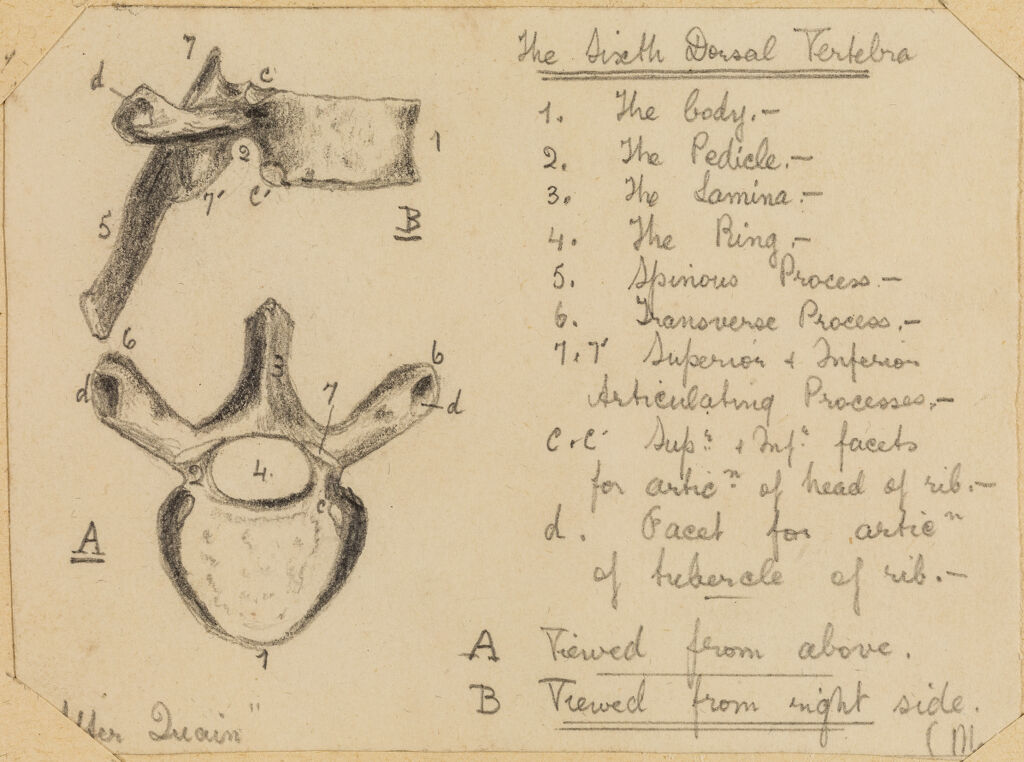 The Sixth Dorsal Vertebra
1. The body.—
2. The Pedicle.—
3. The Lamina.—
4. The Ring.—
5. Spinous Process.—
6. Transverse Process.—
7.7' Superior + Inferior
Articulating Processes.—
C.C' Supr. + Infr. facets
for articn. of head of rib.—
d. Facet for articn
of tubercle of rib.—
A Viewed from above.
B Viewed from right side.
7
d
C
1
2
7'
C'
5
B
6
6
3
7
d
d
4.
2
C
A
1
Quain"